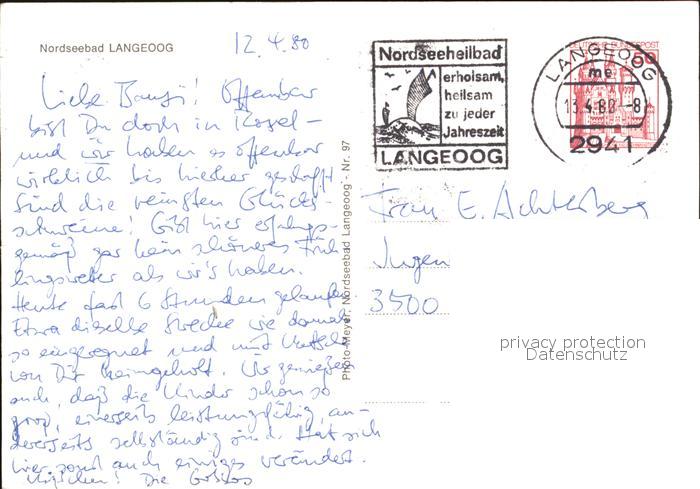 Nordseebad LANGEOOG
12.4.80
Liebe Bangi! Offenbar
bist Du doch in Kassel –
und wir haben es offenbar
wirklich bis hierher geschafft
Sind die reinsten Glücks-
schweine! Gibt hier erfahrungs-
gemäß gar kein schöneres Früh-
lingswetter als wir's haben.
Heute fast 6 Stunden gelaufen.
Etwa dieselbe Strecke wie damals
so eingeregnet und mit Kutsche
von Dir heimgeholt. Wir genießen
auch, daß die Kinder schon so
groß, einerseits leistungsfähig, an-
dererseits selbständig sind. Hat sich
hier sonst auch einiges verändert.
Küßchen! Die
Photo-Meyer, Nordseebad Langeoog - Nr. 97
Nordseeheilbad
erholsam,
heilsam
zu jeder
Jahreszeit
LANGEOOG
LANGEOOG
me
13.4.80 -8
2941
DEUTSCHE BUNDESPOST
50
Frau E. Achterberg
3500
privacy protection
Datenschutz